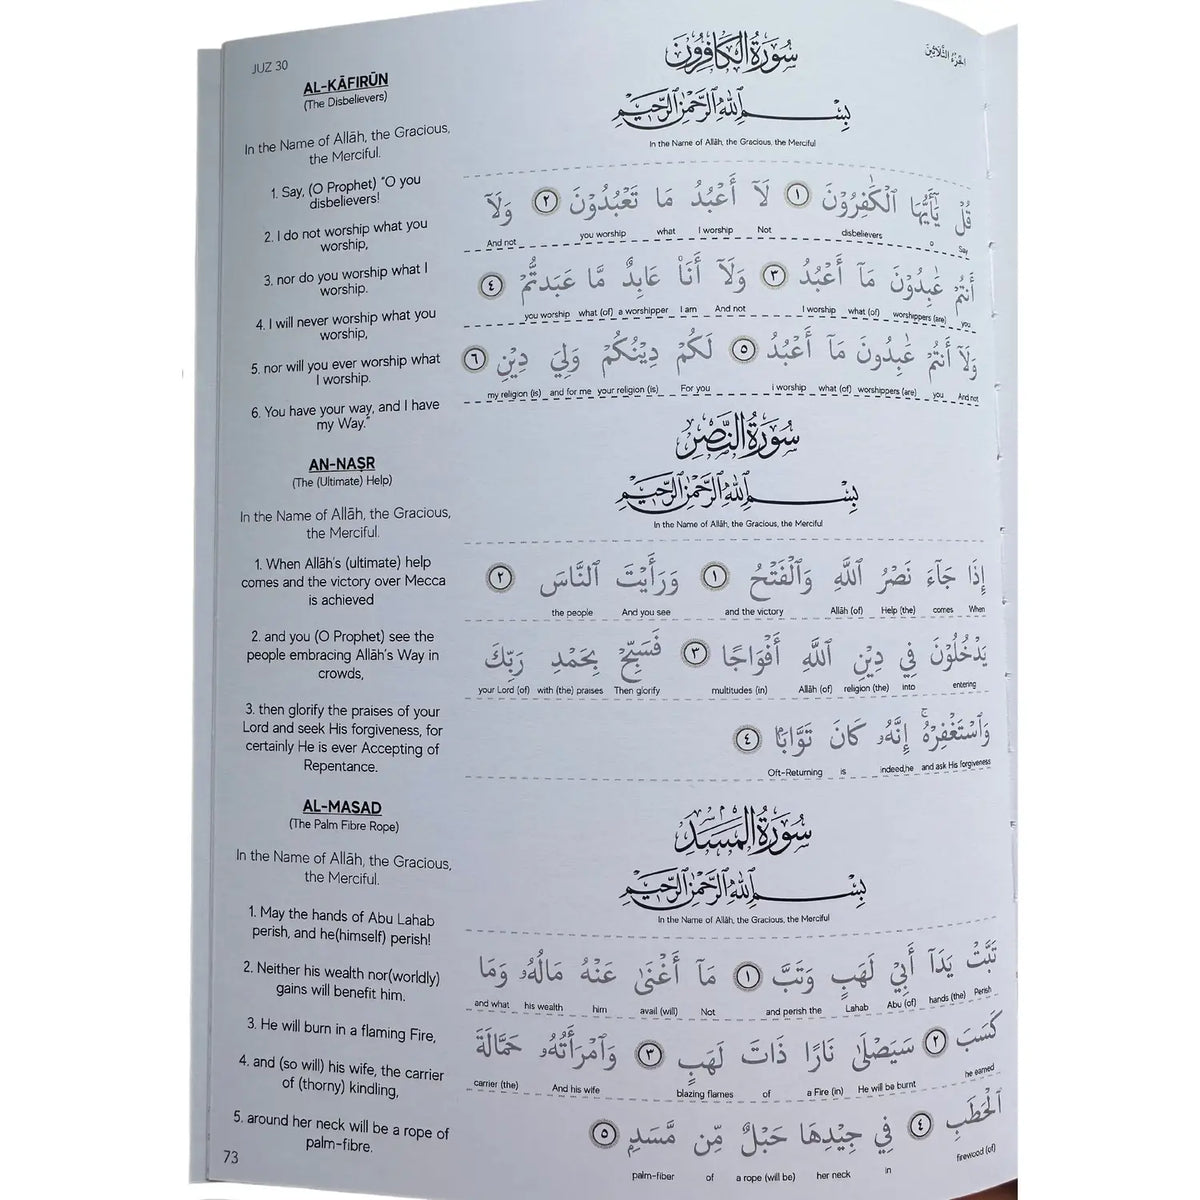 JUZ 30
الجزء الثلاثين
AL-KĀFIRŪN
(The Disbelievers)
In the Name of Allāh, the Gracious,
the Merciful.
1. Say, (O Prophet) "O you
disbelievers!
2. I do not worship what you
worship,
3. nor do you worship what I
worship.
4. I will never worship what you
worship,
5. nor will you ever worship what
I worship.
6. You have your way, and I have
my Way."
AN-NAṢR
(The (Ultimate) Help)
In the Name of Allāh, the Gracious,
the Merciful.
1. When Allāh's (ultimate) help
comes and the victory over Mecca
is achieved
2. and you (O Prophet) see the
people embracing Allāh's Way in
crowds,
3. then glorify the praises of your
Lord and seek His forgiveness, for
certainly He is ever Accepting of
Repentance.
AL-MASAD
(The Palm Fibre Rope)
In the Name of Allāh, the Gracious,
the Merciful.
1. May the hands of Abu Lahab
perish, and he(himself) perish!
2. Neither his wealth nor(worldly)
gains will benefit him.
3. He will burn in a flaming Fire,
4. and (so will) his wife, the carrier
of (thorny) kindling,
5. around her neck will be a rope of
palm-fibre.
73
سُورَةُ الكَافِرُونَ
بِسْمِ ٱللَّهِ ٱلرَّحْمَٰنِ ٱلرَّحِيمِ
In the Name of Allāh, the Gracious, the Merciful
قُلْ يَٰٓأَيُّهَا ٱلْكَٰفِرُوْنَ ١ لَآ أَعْبُدُ مَا تَعْبُدُوْنَ ٢ وَلَآ
And not you worship what I worship Not disbelievers O Say
أَنتُمْ عَٰبِدُوْنَ مَآ أَعْبُدُ ٣ وَلَآ أَنَا۠ عَابِدٌ مَّا عَبَدتُّمْ ٤
you worship what (of) a worshipper I am And not I worship what (of) worshippers (are) you
وَلَآ أَنتُمْ عَٰبِدُونَ مَآ أَعْبُدُ ٥ لَكُمْ دِيْنُكُمْ وَلِيَ دِيْنِ ٦
my religion (is) and for me your religion (is) For you i worship what (of) worshippers (are) you And not
سُورَةُ النَّصْرِ
بِسْمِ ٱللَّهِ ٱلرَّحْمَٰنِ ٱلرَّحِيمِ
In the Name of Allāh, the Gracious, the Merciful
إِذَا جَآءَ نَصْرُ ٱللَّهِ وَٱلْفَتْحُ ١ وَرَأَيْتَ ٱلنَّاسَ ٢
the people And you see and the victory Allāh (of) Help (the) comes When
يَدْخُلُوْنَ فِي دِيْنِ ٱللَّهِ أَفْوَاجًا ٣ فَسَبِّحْ بِحَمْدِ رَبِّكَ
your Lord (of) with (the) praises Then glorify multitudes (in) Allāh (of) religion (the) into entering
وَٱسْتَغْفِرْهُ ۚ إِنَّهُۥ كَانَ تَوَّابًۢا ٤
Oft-Returning is indeed,he and ask His forgiveness
سُورَةُ المَسَدِ
بِسْمِ ٱللَّهِ ٱلرَّحْمَٰنِ ٱلرَّحِيمِ
In the Name of Allāh, the Gracious, the Merciful
تَبَّتْ يَدَآ أَبِيْ لَهَبٍ وَتَبَّ ١ مَآ أَغْنَىٰ عَنْهُ مَالُهُۥ وَمَا
and what his wealth him avail (will) Not and perish the Lahab Abu (of) hands (the) Perish
كَسَبَ ٢ سَيَصْلَىٰ نَارًا ذَاتَ لَهَبٍ ٣ وَٱمْرَأَتُهُۥ حَمَّالَةَ
carrier (the) And his wife blazing flames of a Fire (in) He will be burnt he earned
ٱلْحَطَبِ ٤ فِي جِيْدِهَا حَبْلٌ مِّن مَّسَدٍ ٥
palm-fiber of a rope (will be) her neck in firewood (of)